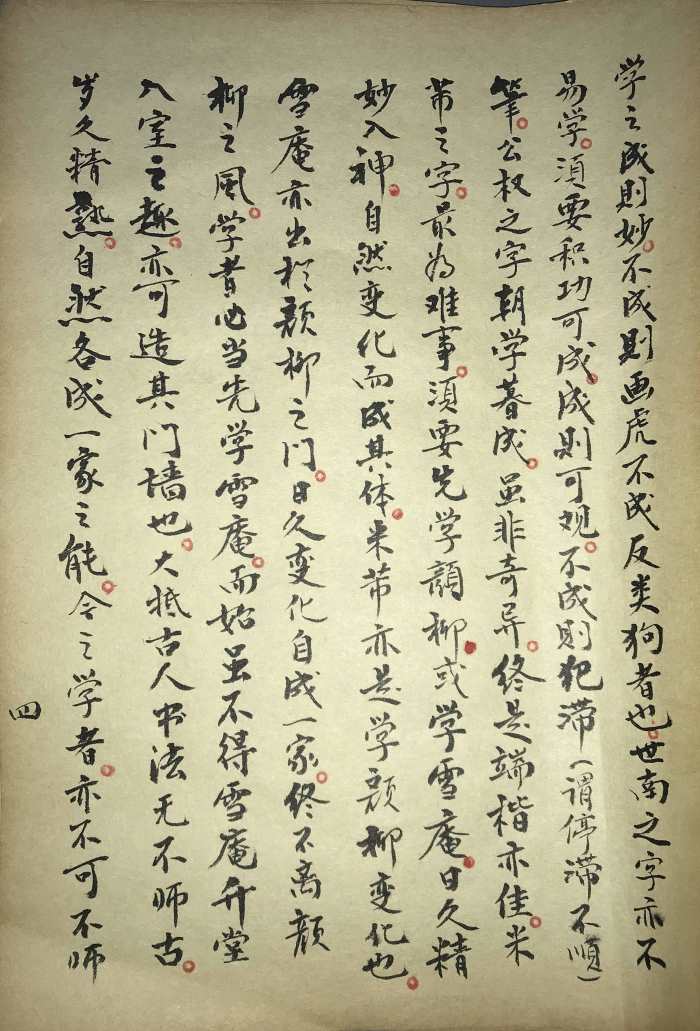 学之成则妙。不成则画虎不成反类狗者也。世南之字亦不
易学。须要积功可成。成则可观。不成则犯滞(谓停滞不顺)
筆。公权之字朝学暮成。虽非奇异。终是端楷亦佳。米
芾之字。最为难事。须要先学颜柳。或学雪庵。日久精
妙入神。自然变化而成其体。米芾亦是学颜柳变化也。
雪庵亦出於颜柳之门。日久变化自成一家。终不离颜
柳之風。学者必当先学雪庵。而始虽不得雪庵升堂
入室之趣。亦可造其门墙也。大抵古人书法无不师古。
岁久精熟。自然各成一家之能。今之学者。亦不可不师
四